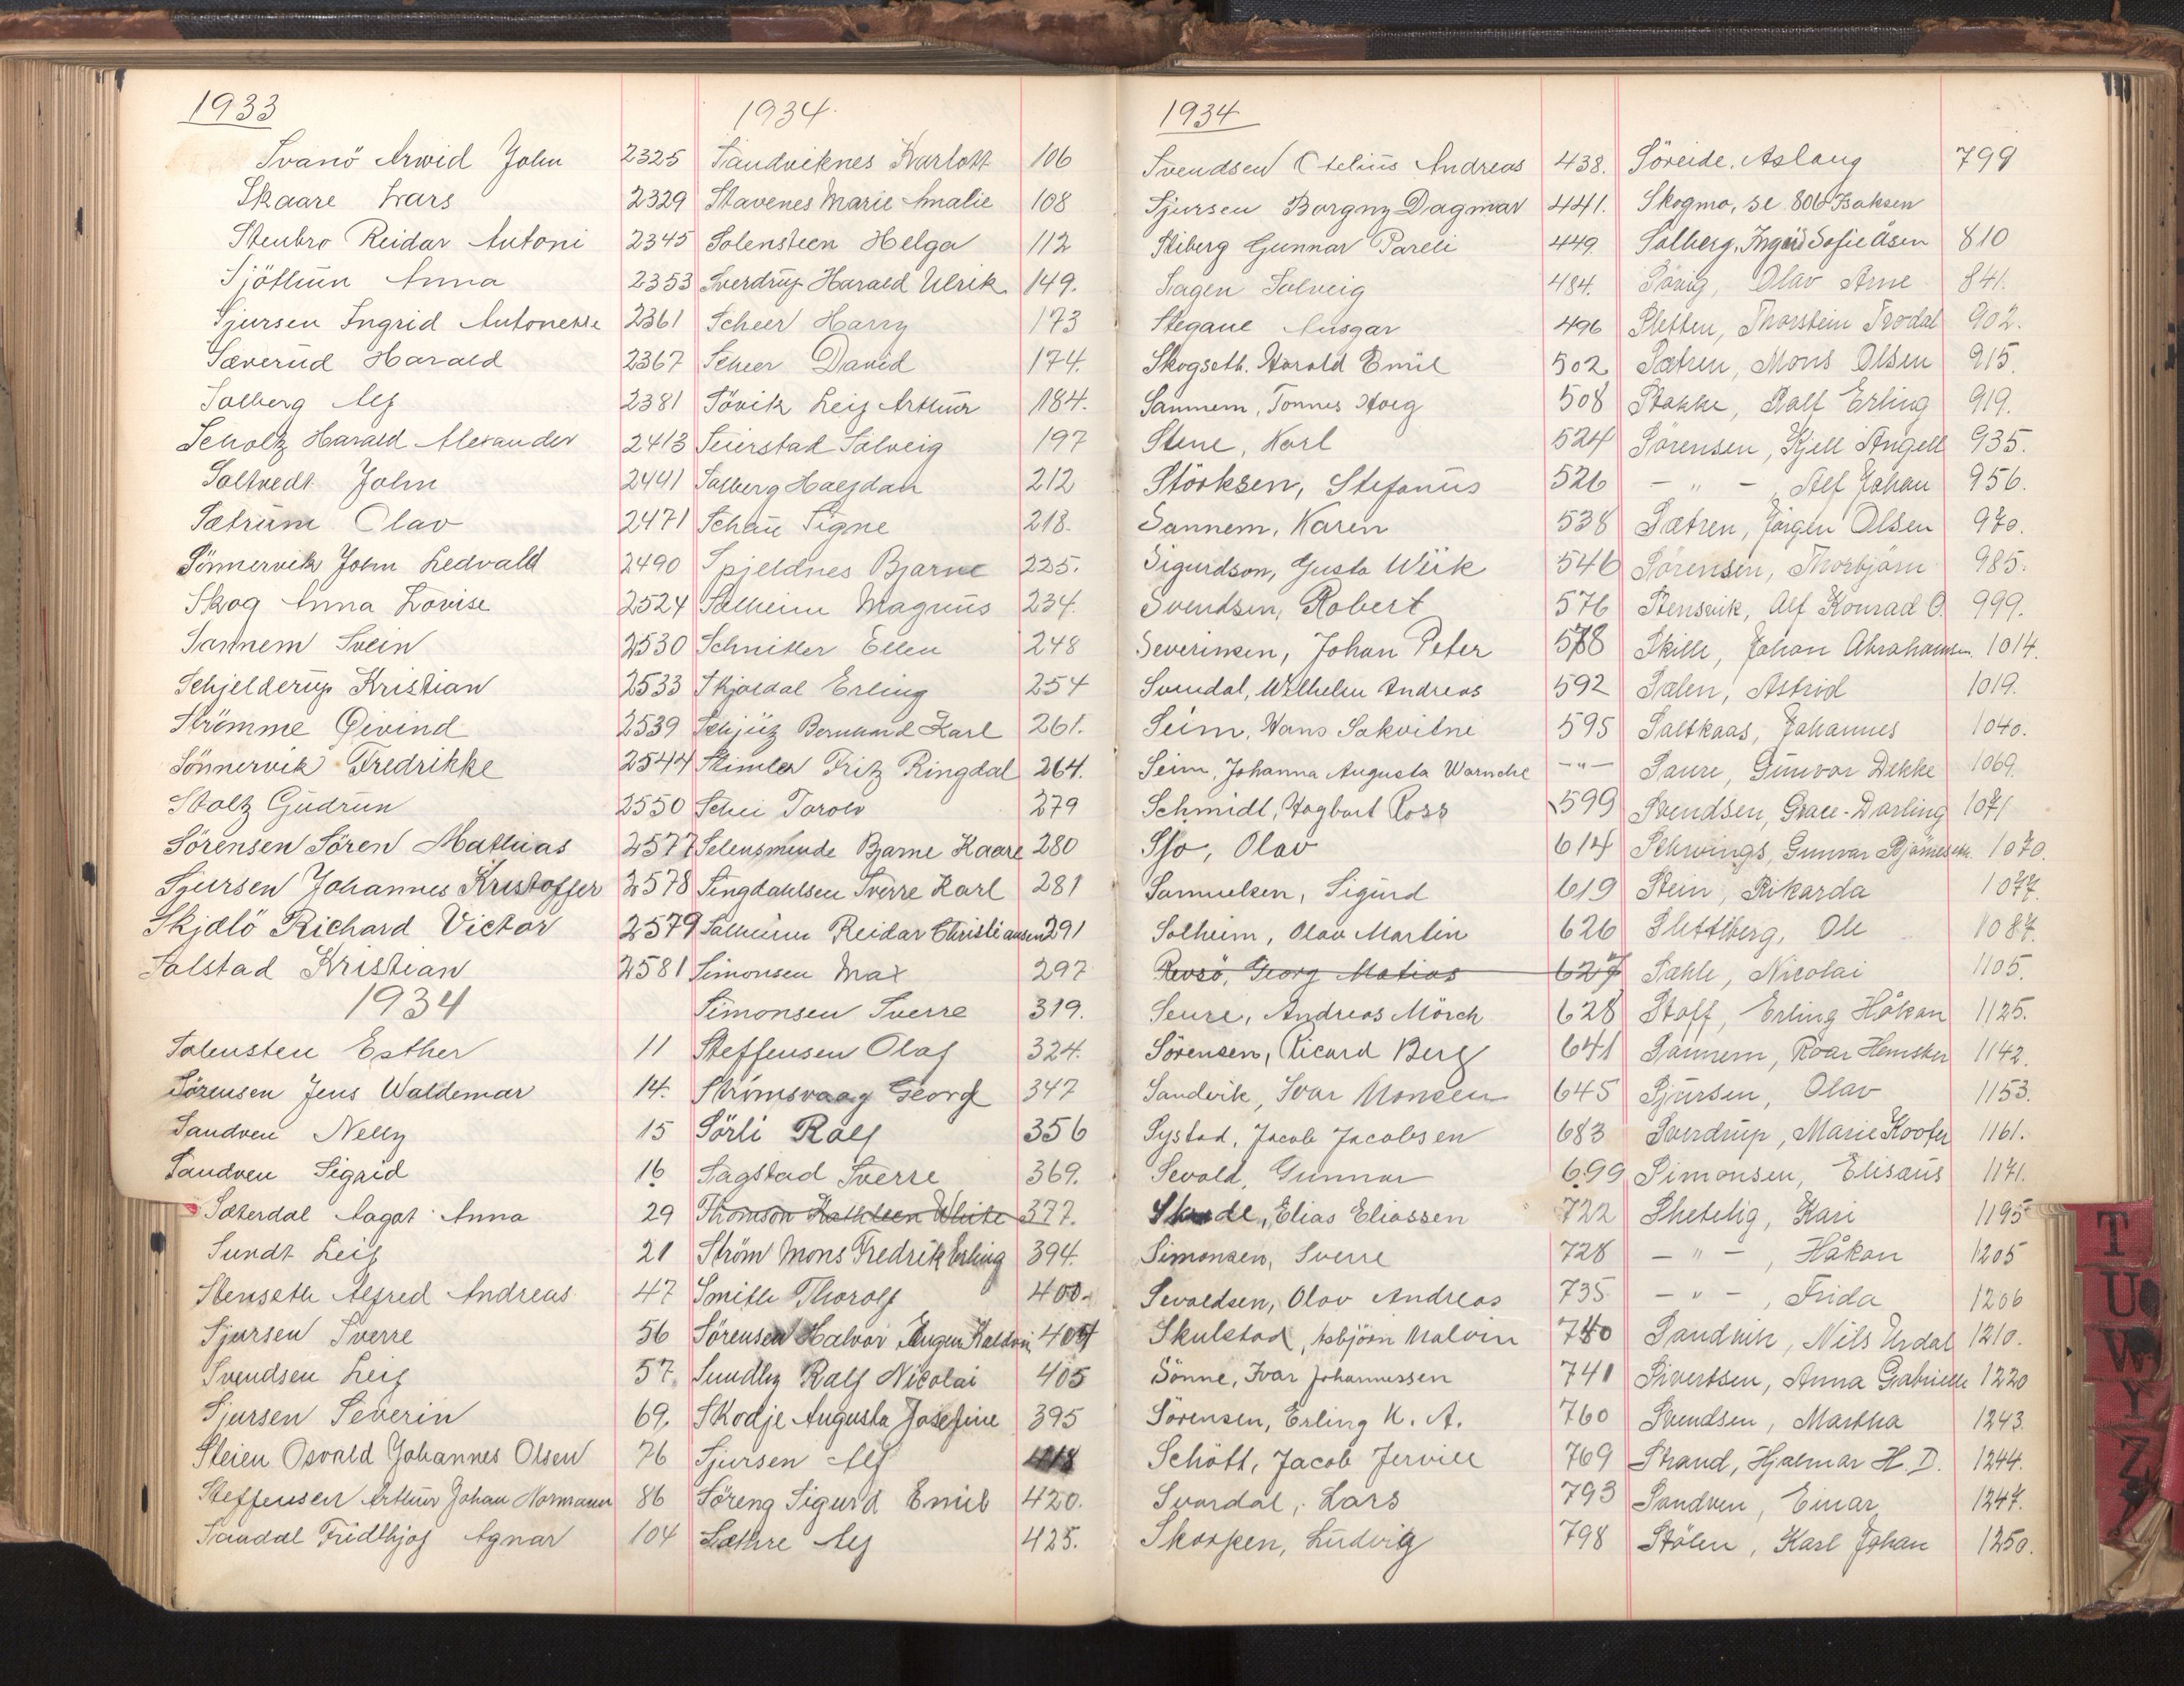 1933
Svanö Arwid John 2325
Skaare Lars 2329
Stenbro Reidar Antoni 2345
Sjöthun Anna 2353
Sjursen Ingrid Antonette 2361
Sæverud Harald 2367
Solberg Alf 2381
Scholz Harald Alexander 2413
Soltvedt John 2441
Sætrum Olav 2471
Sönnervik John Ledvald 2490
Skog Anna Lovise 2524
Sannem Svein 2530
Schjelderup Kristian 2533
Strömme Øivind 2539
Sönnervik Fredrikke 2544
Stolz Gudrun 2550
Sörensen Sören Mathias 2577
Sjursen Johannes Kristoffer 2578
Skjelö Richard Victor 2579
Solstad Kristian 2581
1934
Solensten Esther 11
Sörensen Jens Waldemar 14.
Sandven Nelly 15
Sandven Sigrid 16
Sæterdal Aagot Anna 29
Sundt Leif 21
Stenseth Alfred Andreas 47
Sjursen Sverre 56
Svendsen Leif 57.
Sjursen Severin 69.
Steien Osvald Johannes Olsen 76
Steffensen Arthur Johan Normann 86
Sandal Fridthjof Agnar 104
1934.
Sandviknes Karlott 106
Stavenes Marie Amalie 108
Solensteen Helga 112
Sverdrup Harald Ulrik 149.
Scheer Harry 173
Scheer David 174.
Sövik Leif Arthur 184.
Seierstad Solveig 197
Solberg Halfdan 212
Schau Signe 218.
Spjeldnes Bjarne 225.
Solheim Magnus 234.
Schnitler Ellen 248
Skjoldal Erling 254
Schjüz Bernhard Karl 261.
Stimler Fritz Ringdal 264.
Schei Torolv 279
Selensminde Bjarne Kaare 280
Singdahlsen Sverre Karl 281
Solheim Reidar Christiansen 291
Simonsen Max 297
Simonsen Sverre 319.
Steffensen Olaf 324.
Strömsvaag Georg 347
Sörli Ralf 356
Sagstad Sverre 369.
Thomson Kathleen White 377.
Ström Mons Fredrik Erling 394.
Smith Thorolf 400.
Sörensen Halvor Eugen 404
Sundby Ralf Nicolai 405
Skodje Augusta Josefine 395
Sjursen Alf 418
Söreng Sigurd Emil 420.
Sæthre Alf 425.
1934
Svendsen Otelius Andreas 438.
Sjursen Borgny Dagmar 441.
Stiberg Gunnar Pareli 449.
Sagen Solveig 484.
Stegane Ansgar 496
Skogseth. Harald Emil 502
Sannem, Tönnes Hoeg 508
Stene, Karl 524
Störksen, Stefanus 526
Sannem, Karen 538
Sigurdson, Gusta Wiik 546
Svendsen, Robert 576
Severinsen, Johan Peter 578
Svendal, Wilhelm Andreas 592
Seim, Hans Sakvitne 595
Seim, Johanna Augusta Warncke —"—
Schmidt, Hagbart Ross 599
Sjo, Olav 614
Samuelsen, Sigurd 619
Solheim, Olav Martin 626
Revsö, Georg Matias 627
Seure, Andreas Mörch 628
Sörensen, Ricard Berg 641
Sandvik, Ivar Monsen 645
Systad, Jacob Jacobsen 683
Sevold, Gunnar 699
Elias Eliassen 722
Simonsen, Sverre 728
Sevaldsen, Olav Andreas 735
Skulstad, Asbjörn Malvin 740
Sönne, Ivar Johannessen 741
Sörensen, Erling K. A. 760
Schött, Jacob Jervill 769
Svardal, Lars 793
Skorpen, Ludvig 798
Söreide. Aslaug 799
Skogmo, se 806 Isaksen
Solberg, Ingrid Sofie Åsen 810
Sövig, Olav Arne 841.
Sletten, Thorstein Trodal 902.
Sætren, Mons Olsen 915.
Stokke, Ralf Erling 919.
Sörensen, Kjell Angell 935.
— " —, Alf Johan 956.
Sætren, Jörgen Olsen 970.
Sörensen, Thorbjörn 985.
Stensvik, Alf Konrad O. 999.
Skille, Johan Abrahamsen. 1014.
Sælen, Astrid 1019.
Saltkaas, Johannes 1040.
Saure, Gunvor Dekke 1069.
Svendsen, Grace-Darling 1071
Schwings, Gunvar 1070.
Stein, Rikarda 1077.
Slettberg, Ole 1087.
Sahle, Nicolai 1105.
Stoff, Erling Håkon 1125.
Sannem, Roar Hemsker 1142.
Sjursen, Olav 1153.
Sverdrup, Marie Koofer 1161.
Simonsen, Elisæus 1171.
Shetelig, Kari 1195
— " —, Håkon 1205
— " —, Frida 1206
Sandvik, Nils Urdal 1210.
Sivertsen, Anna Gabrielle 1220
Svendsen, Martha 1243.
Strand, Hjalmar H. D. 1244.
Sandven, Einar 1247.
Stölen, Karl Johan 1250.
T
U
W
Y
Z